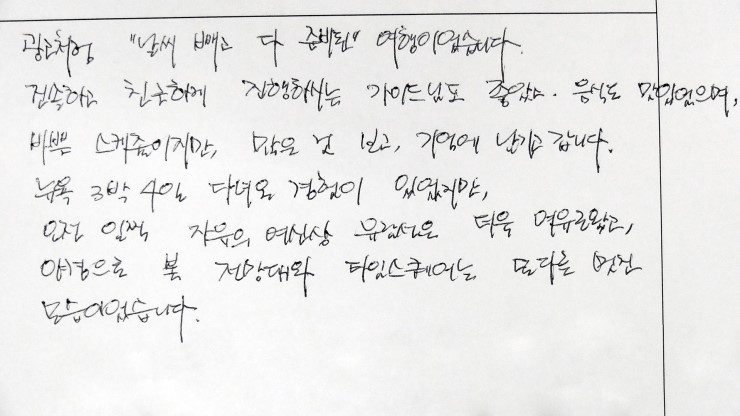 광고처럼 "날씨 빼고 다 준비된" 여행이었습니다.
친절하게 진행하시는 가이드님도 좋았고. 음식도 맛있었으며,
바쁜 스케줄이지만, 많은 것 보고, 기억에 남기고 갑니다.
뉴욕 3박 4일 다녀온 경험이 있었지만,
오전 일찍 자유의 여신상 유람선은 더욱 여유로왔고,
야경으로 본 전망대와 타임스퀘어는 또다른 멋진
모습이었습니다.